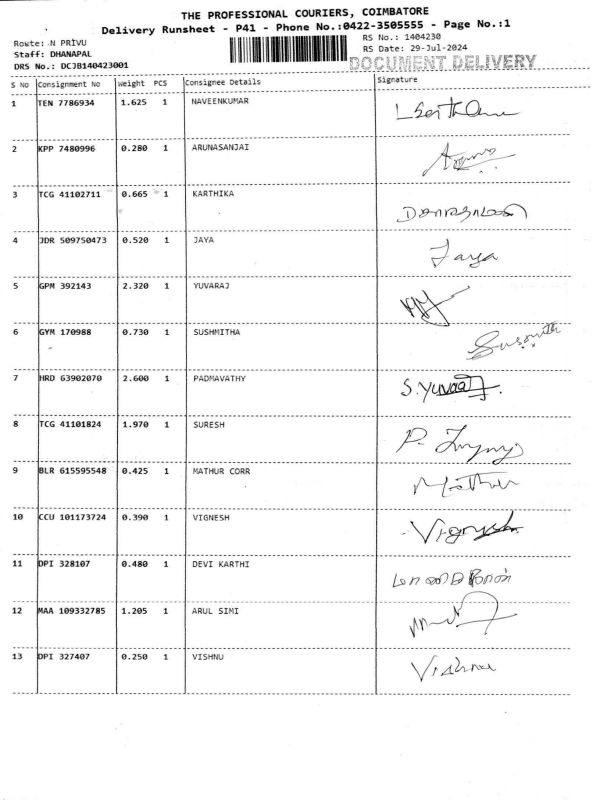 THE PROFESSIONAL COURIERS, COIMBATORE
Delivery Runsheet - P41 - Phone No.:0422-3505555 - Page No.:1
Route: N PRIVU
Staff: DHANAPAL
DRS No.: DCJB140423001
RS No.: 1404230
RS Date: 29-Jul-2024
DOCUMENT DELIVERY
S No Consignment No Weight PCS Consignee Details Signature
1 TEN 7786934 1.625 1 NAVEENKUMAR
2 KPP 7480996 0.280 1 ARUNASANJAI
3 TCG 41102711 0.665 1 KARTHIKA
4 JDR 509750473 0.520 1 JAYA Jaya
5 GPM 392143 2.320 1 YUVARAJ
6 GYM 170988 0.730 1 SUSHMITHA
7 HRD 63902070 2.600 1 PADMAVATHY
8 TCG 41101824 1.970 1 SURESH
9 BLR 615595548 0.425 1 MATHUR CORR
10 CCU 101173724 0.390 1 VIGNESH Vignesh
11 DPI 328107 0.480 1 DEVI KARTHI
12 MAA 109332785 1.205 1 ARUL SIMI
13 DPI 327407 0.250 1 VISHNU Vishnu